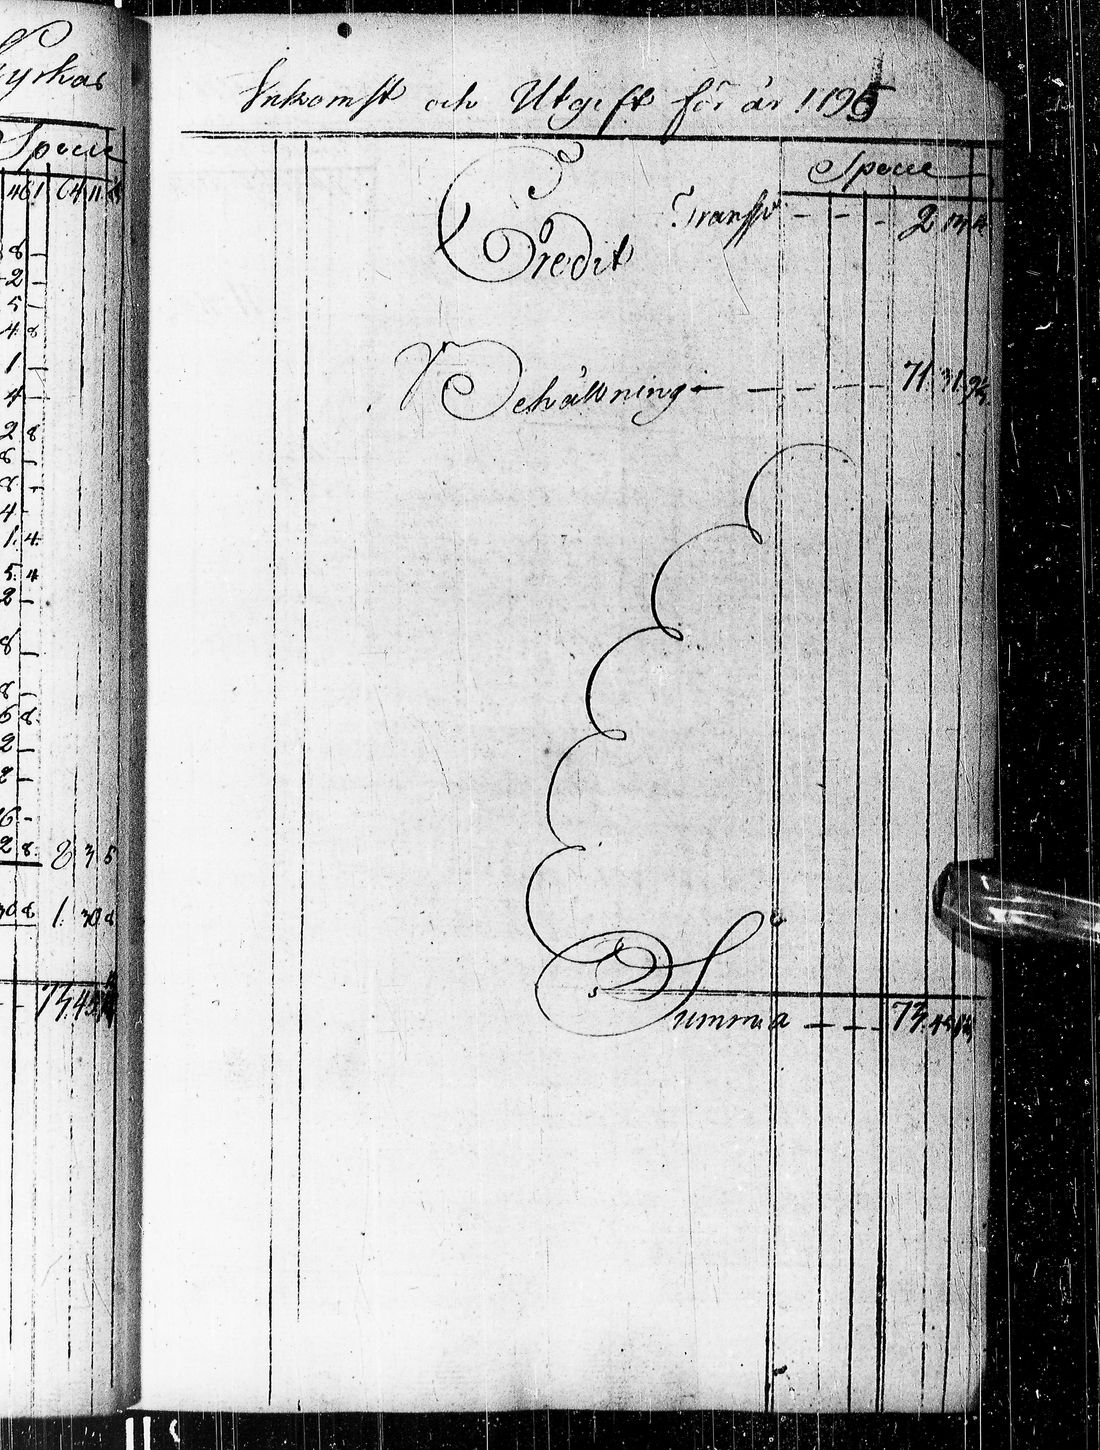 yrkas
Specie
461 64 11 8
8 –
2 –
5 –
4 8
1 –
4 –
2 8
8 –
8 –
4 –
1. 4.
5. 4
2 –
8 –
8 –
6 8
2 –
2 –
16 –
2 8. 8 3 5
308 1. 30 8
73. 45
Inkomst och Utgift för år 1795
Specie
Credit
Transp. – – – 2
Behållning – – – – – 71. 31. 9
Summa – – – 73. 45